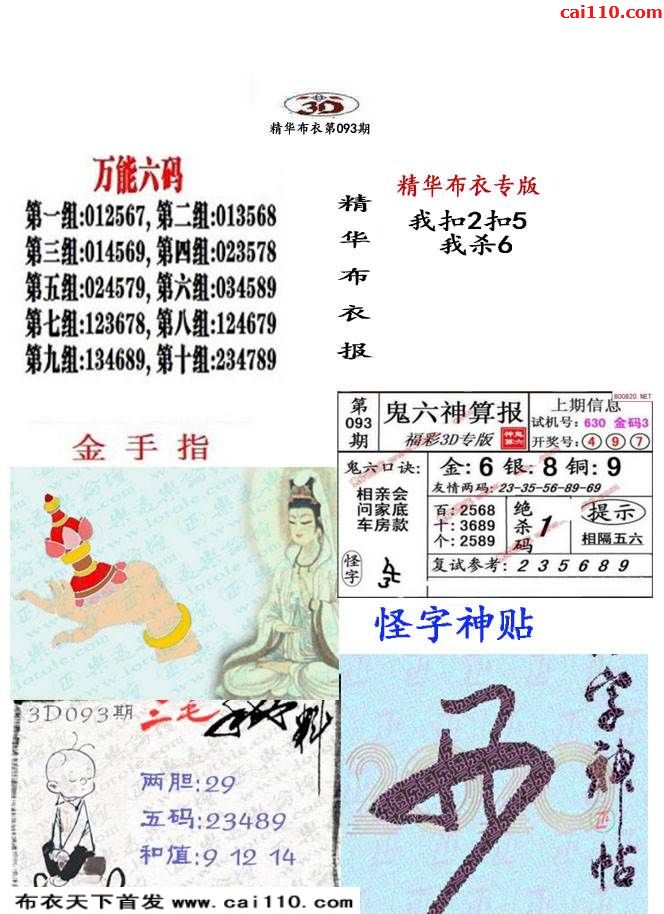 cai110.com
3D
精华布衣第093期
万能六码
第一组:012567, 第二组:013568
第三组:014569, 第四组:023578
第五组:024579, 第六组:034589
第七组:123678, 第八组:124679
第九组:134689, 第十组:234789
精华布衣报
精华布衣专版
我扣2扣5
我杀6
金手指
第093期
鬼六神算报
福彩3D专版
上期信息
800820.NET
试机号: 630 金码3
开奖号: 4 9 7
鬼六口诀:
相亲会
问家底
车房款
怪字
金:6 银:8 铜:9
友情两码:23-35-56-89-69
百:2568
十:3689
个:2589
绝杀码
1
提示
相隔五六
复试参考: 2 3 5 6 8 9
怪字神贴
字神帖
3D093期
三毛
两胆:29
五码:23489
和值:9 12 14
布衣天下首发 www.cai110.com